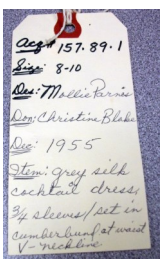 Acq# 157.89.1
Size: 8-10
Des: Mollie Parnis
Don: Christine Blake
Dec: 1955
Item: grey silk
cocktail dress,
3/4 sleeves/set in
cumberbund at waist
V-neckline